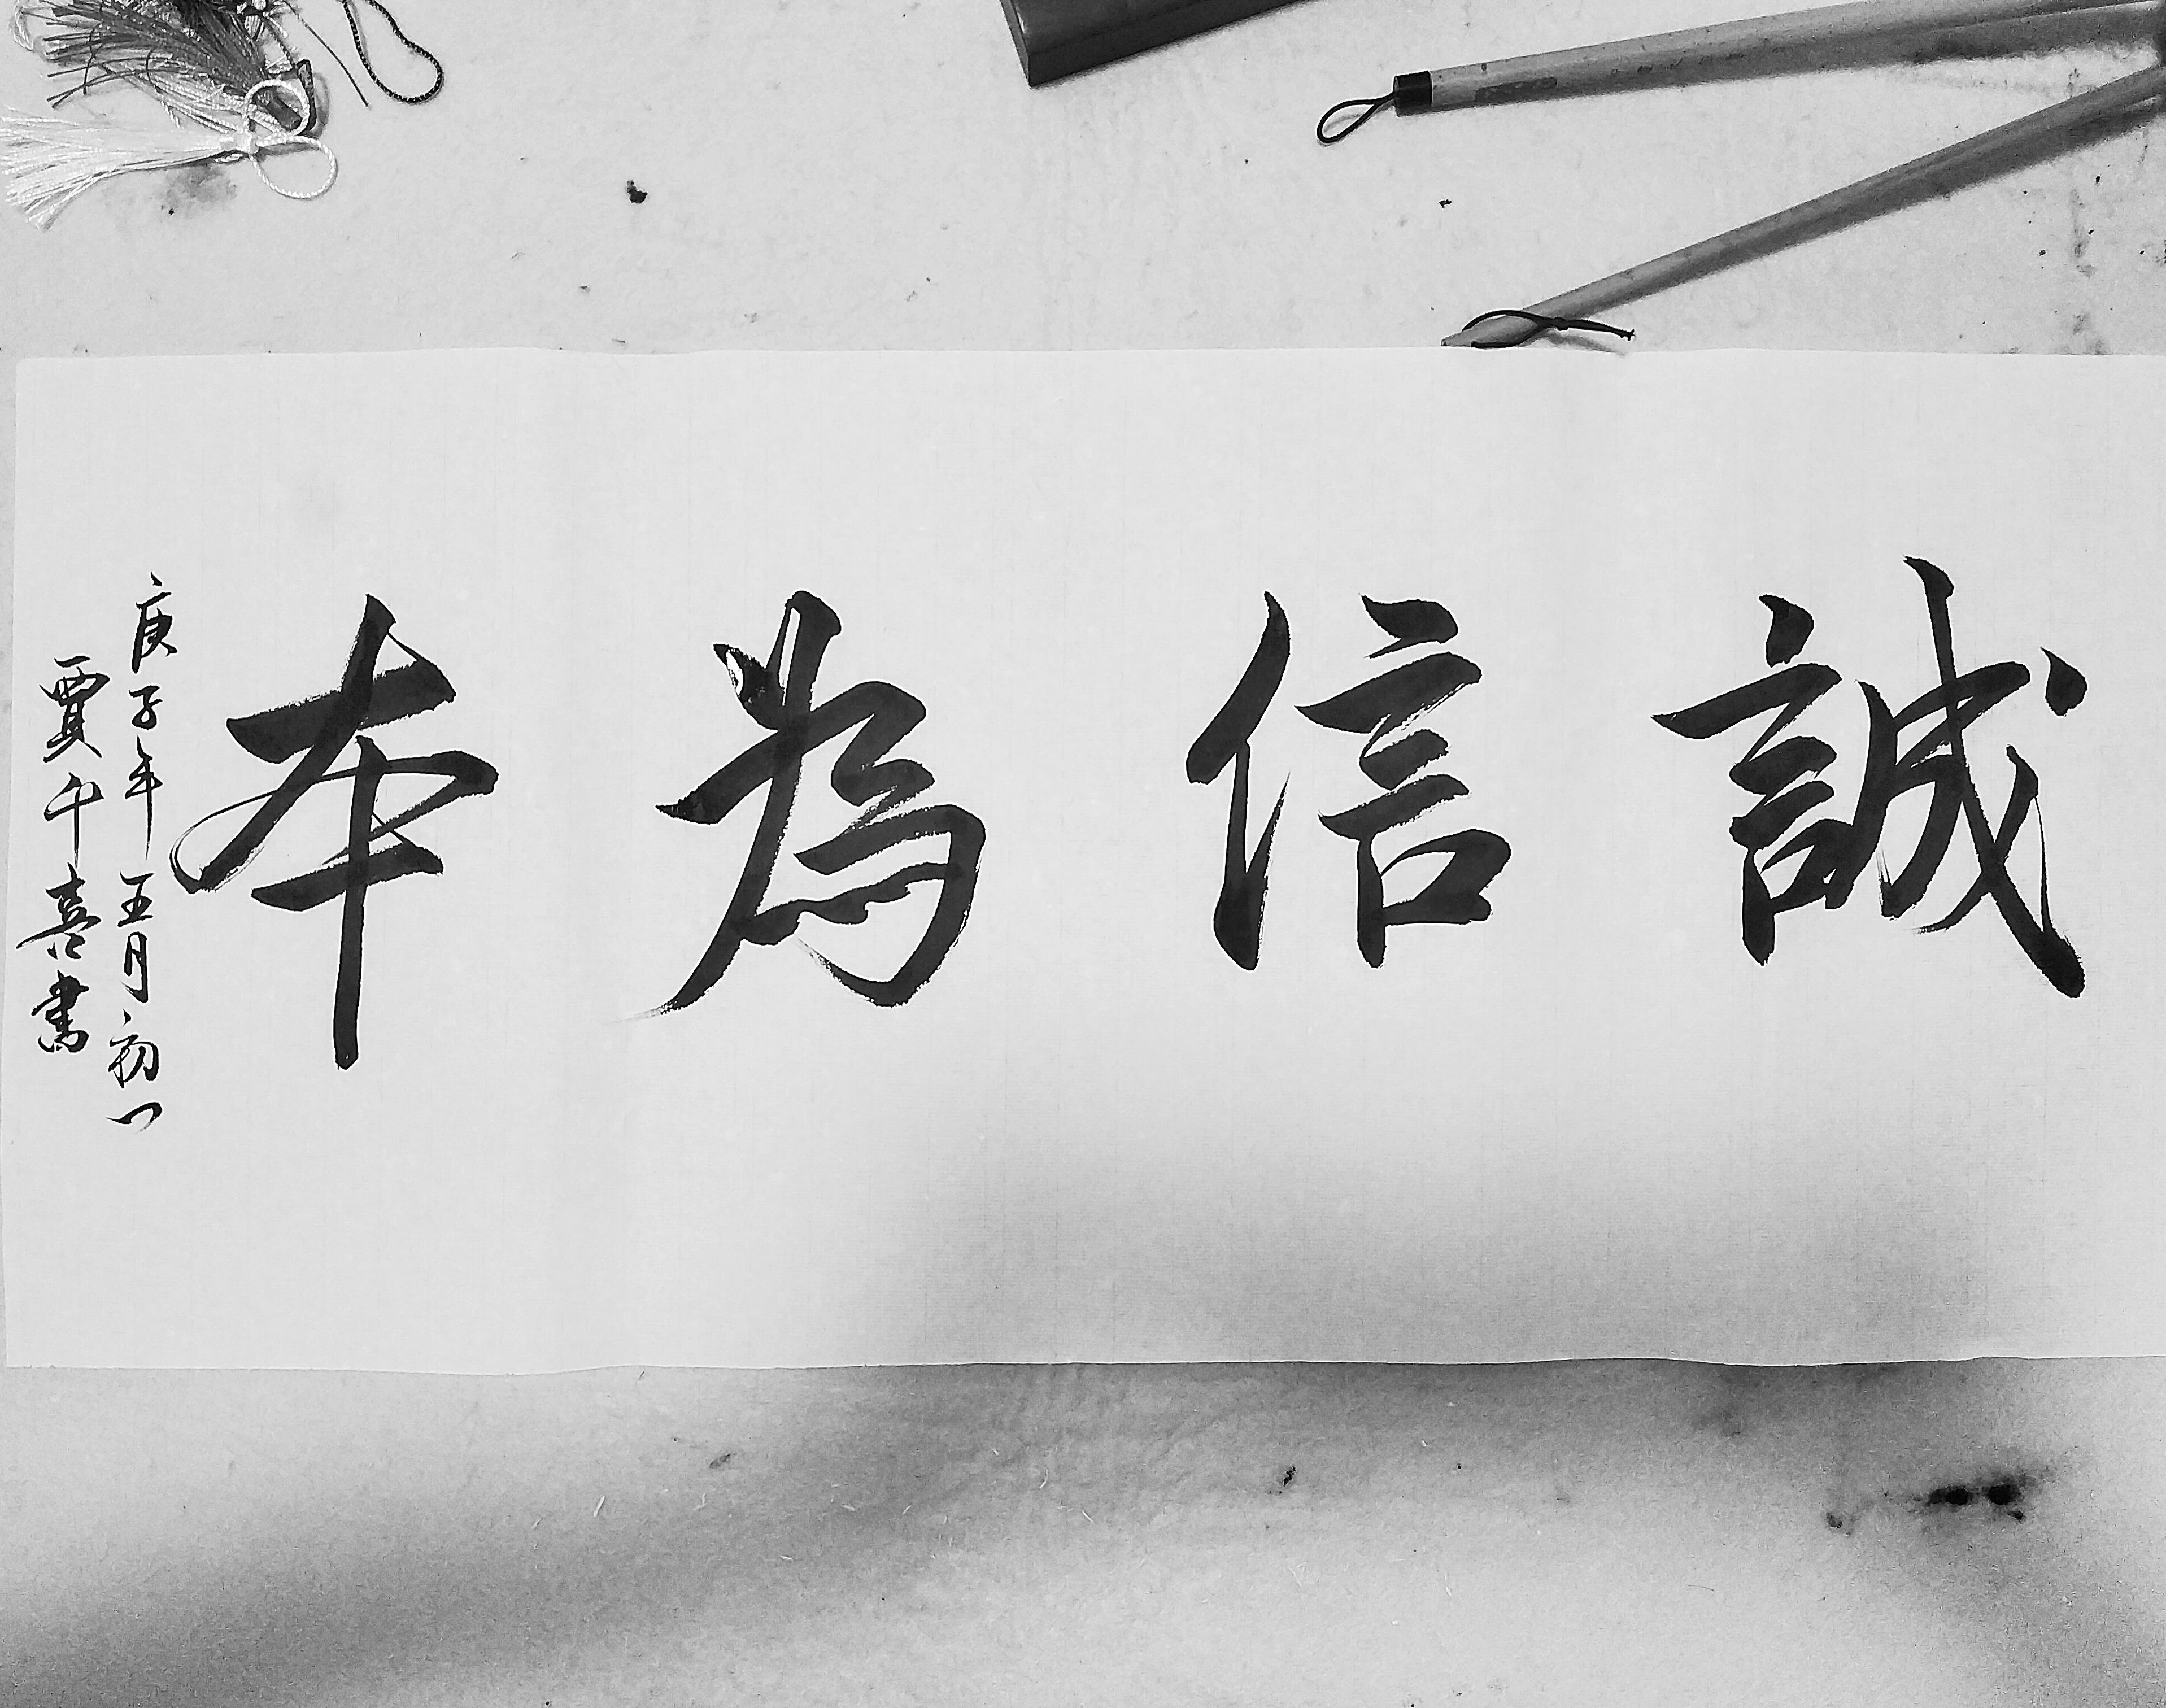 誠信為本
庚子年五月初一
賈午喜書